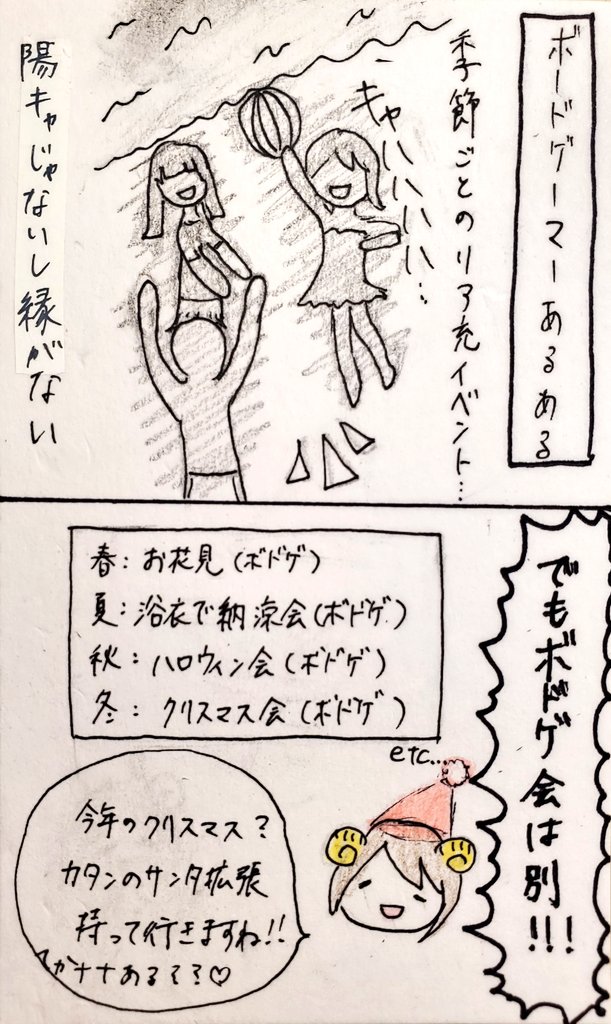 ボードゲーマーあるある
季節ごとのリア充イベント…
キャハハハハハ…
陽キャじゃないし縁がない
でもボドゲ会は別!!!
春:お花見(ボドゲ)
夏:浴衣で納涼会(ボドゲ)
秋:ハロウィン会(ボドゲ)
冬:クリスマス会(ボドゲ)
etc...
今年のクリスマス?
カタンのサンタ拡張
持って行きますね!!